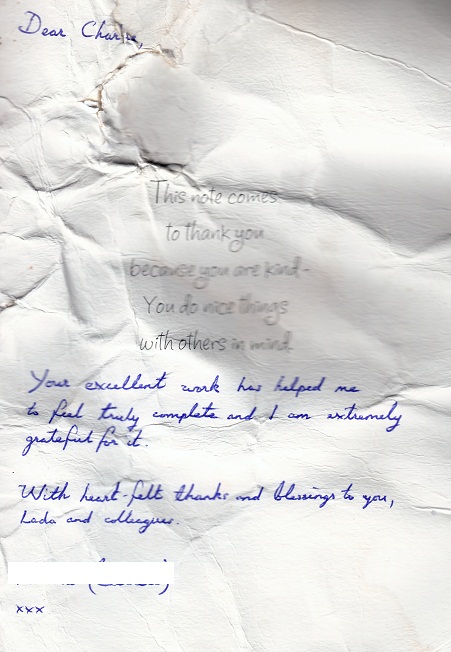 Dear
This note comes
to thank you
because you are kind-
You do nice things
with others in mind.
Your excellent work has helped me
to feel truly complete and I am extremely
grateful for it.
With heart-felt thanks and blessings to you,
Lada and colleagues.
xxx